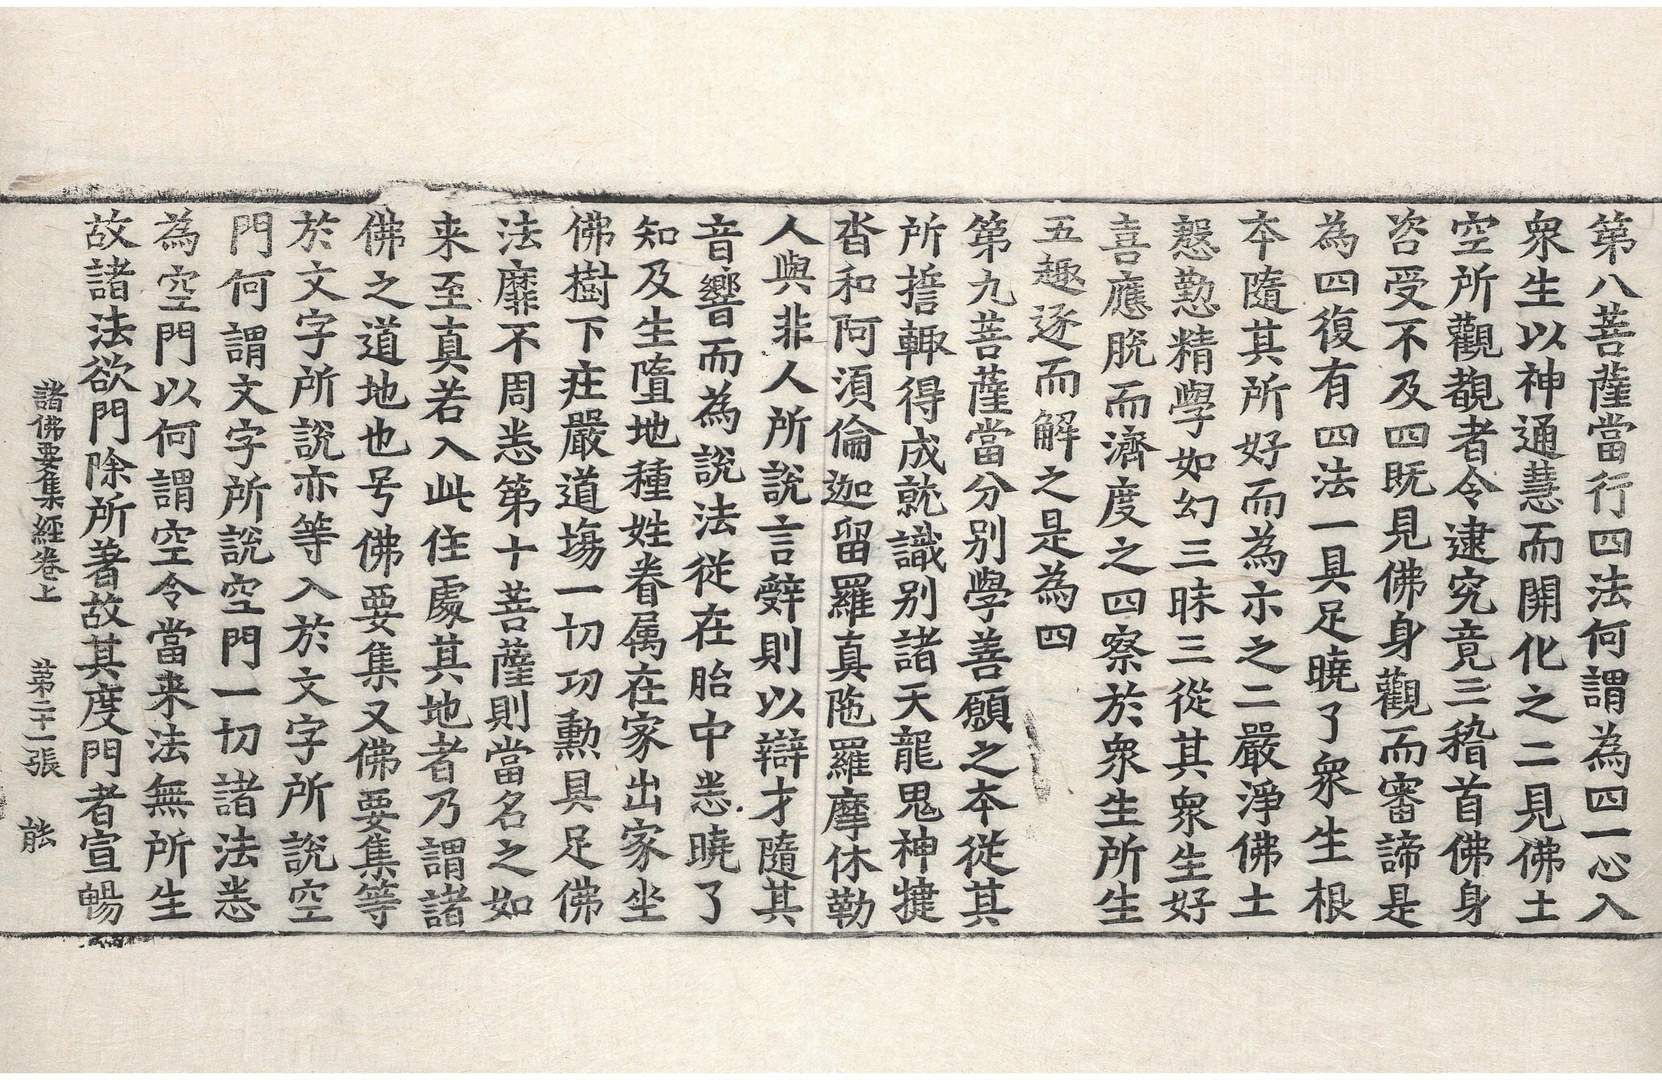 第八菩薩當行四法何謂為四一心入
衆生以神通慧而開化之二見佛土
空所觀覩者令逮究竟三稽首佛身
咨受不及四既見佛身觀而審諦是
為四復有四法一具足曉了衆生根
本隨其所好而為示之二嚴淨佛土
慇懃精學如幻三昧三從其衆生好
喜應脫而濟度之四察於衆生所生
五趣逐而解之是為四
第九菩薩當分別學善願之本從其
所誓輙得成就識別諸天龍鬼神揵
沓和阿湏倫迦留羅真陁羅摩休勒
人與非人所說言辝則以辯才隨其
音響而為說法從在胎中悉曉了
知及生墮地種姓眷属在家出家坐
佛樹下庄嚴道塲一切功勲具足佛
法靡不周悉第十菩薩則當名之如
来至真若入此住處其地者乃謂諸
佛之道地也号佛要集又佛要集等
於文字所說亦等入於文字所說空
門何謂文字所說空門一切諸法悉
為空門以何謂空令當来法無所生
故諸法欲門除所著故其度門者宣暢
諸佛要集經卷上　第二十一張　能